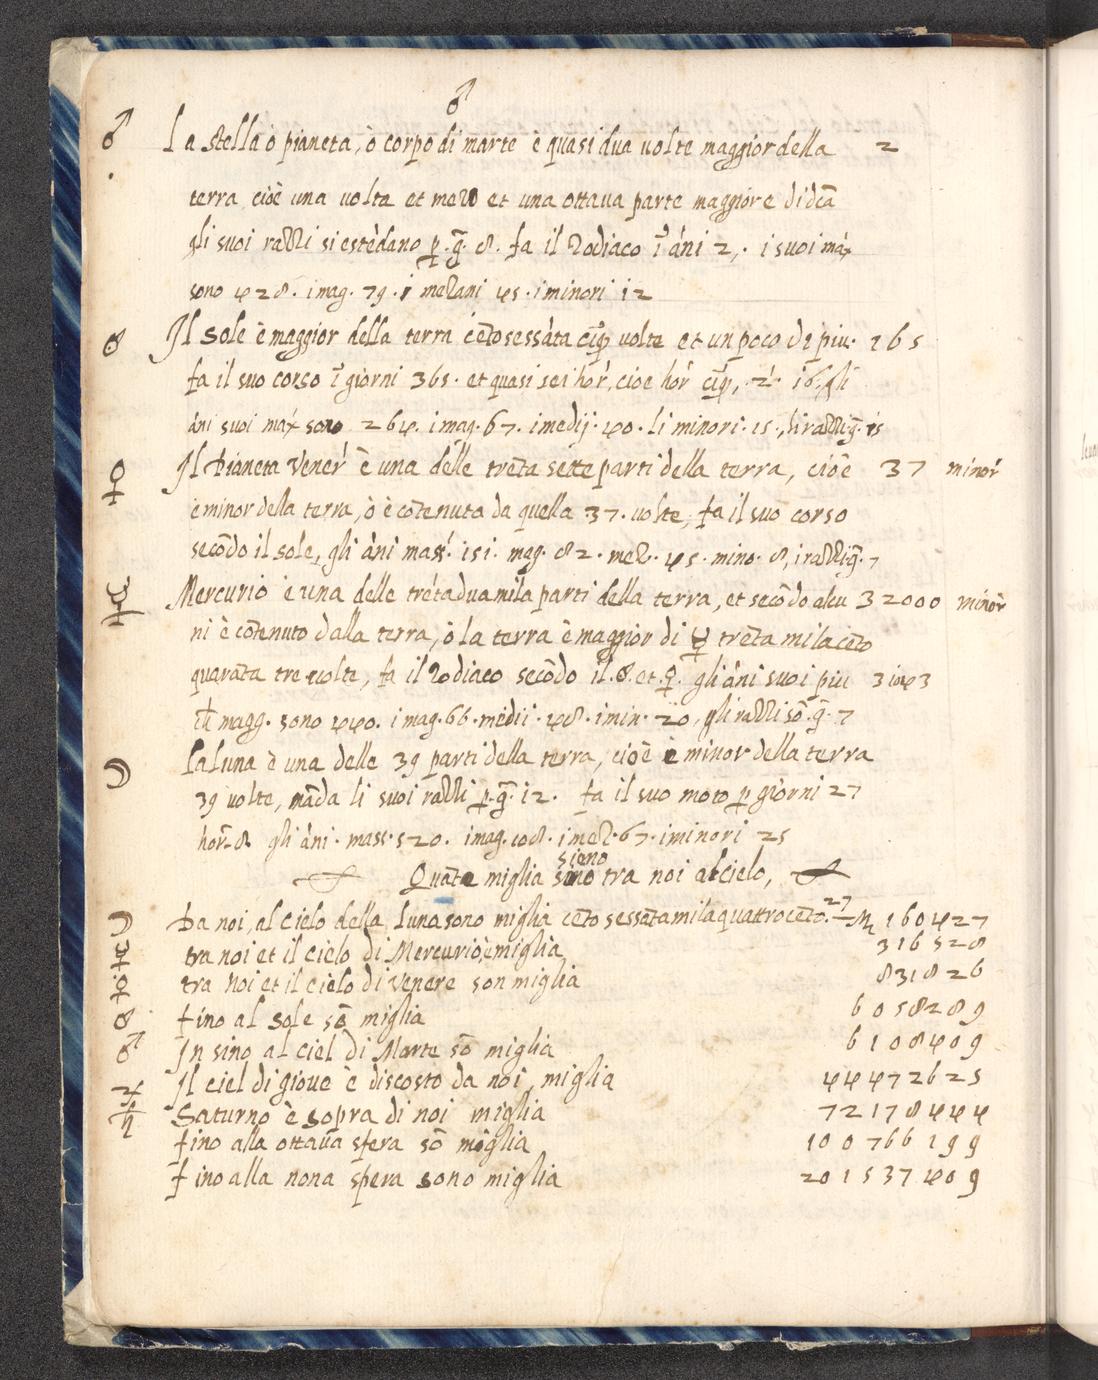 ♂
♂ La stella ò pianeta, ò corpo di marte è quasi dua volte maggior della 2
terra cioè una volta et mezo et una ottava parte maggiore di dcã
gli suoi razzi si estẽdano p. g̃. 8. fa il Zodiaco ĩ ãni 2,. i suoi max
sono 428. i mag. 79. i mezani 45. i minori 12
Il Sole è maggior della terra cẽto sessãta cĩq volte et un poco di piu. 165
fa il suo corso ĩ giorni 365. et quasi sei hor, cioe hor cĩq, gli
ãni suoi max sono 264. i mag. 67. i medij. 40. li minori. 15., li razzi g̃. 15
♀ Il Pianeta Vener è una delle trẽta sette parti della terra, cioè 37 minor
è minor della terra, ò è cõtenuta da quella 37. volte, fa il suo corso
secõdo il sole, gli ãni mass. 151. mag. 82. mez. 45. mino. 8, i razzi g̃. 7
☿ Mercurio è una delle trẽtadua mila parti della terra, et secõdo alcu 32000 minor
ni è cõtenuto dalla terra, ò la terra è maggior di ☿ trẽta mila cẽto
quarãta tre volte, fa il Zodiaco secõdo il. 8. et. ♀. gli ãni suoi piu 30143
magg. sono 440. i mag. 66. medii. 48. i min. 20, gli razzi sõ. g̃. 7
☽ La Luna è una delle 39 parti della terra, cioè è minor della terra
39 volte, mãda li suoi razzi p. g̃. 12. fa il suo moto p giorni 27
hor. 8 gli ãni. mass. 520. i mag. 108. i mez. 67. i minori 25
siano
Quãte miglia sino tra noi al cielo,
☽ Da noi, al cielo della Luna sono miglia cẽto sessãta mila quattrocẽto. 27 — M 160427
☿ tra noi et il cielo di Mercurio è miglia 316528
♀ tra noi et il cielo di venere son miglia 831826
fino al sole sõ miglia 6058289
♂ In sino al ciel di Marte sõ miglia 6108409
♃ Il ciel di giove è discosto da noi, miglia 44472625
♄ Saturno è sopra di noi miglia 72178444
fino alla ottava sfera sõ miglia 100766199
fino alla nona spera sono miglia 201537409